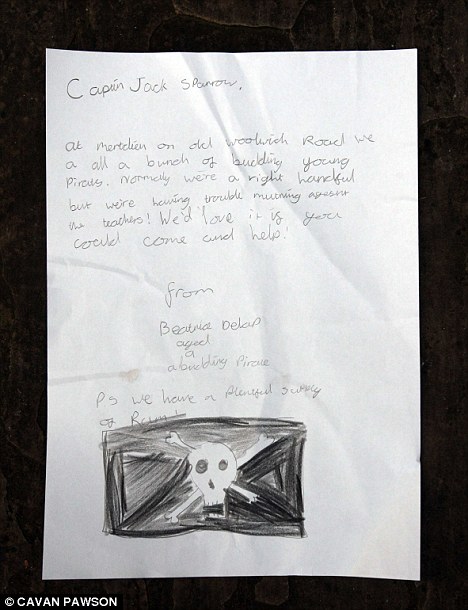 Captin Jack Sparrow,
At meredien on old woolwich Road we
a all a bunch of budding young
Pirates. Normally we're a right handful
but we're having trouble mutinying agesnt
the teachers! We'd love it if you
could come and help!
from
Beatrice Delap
aged
9
a budding Pirate
Ps we have a Plentiful supply
of
© CAVAN PAWSON